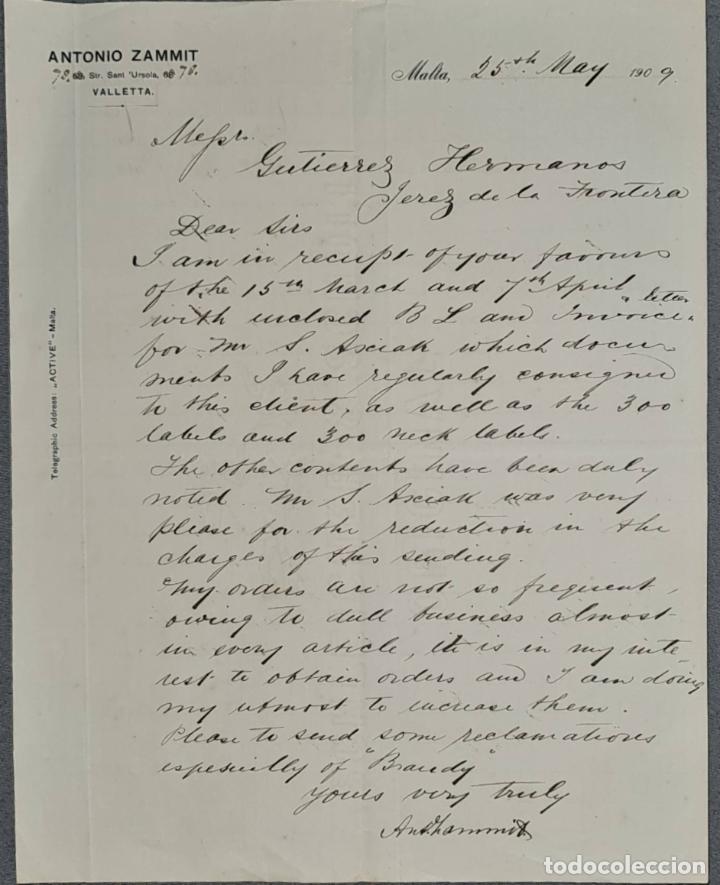 ANTONIO ZAMMIT
78. Str. Sant 'Ursola, 78.
VALLETTA.
Malta, 25th May 1909.
Messrs.
Gutierrez Hermanos
Jerez de la Frontera
Dear Sirs
I am in receipt of your favours
of the 15th March and 7th April
letter
with inclosed B L and Invoice
for Mr S. Axiak which docu
ments I have regularly consigned
to this client, as well as the 300
labels and 300 neck labels.
The other contents have been duly
noted. Mr S. Axiak was very
please for the reduction in the
charges of this sending.
My orders are not so frequent,
owing to dull business almost
in every article, it is in my inte-
rest to obtain orders and I am doing
my utmost to increase them.
Please to send some reclamations
espesially of "Brandy"
Yours very truly
Ant Zammit
Telegraphic Address: „ACTIVE" - Malta.
todocoleccion